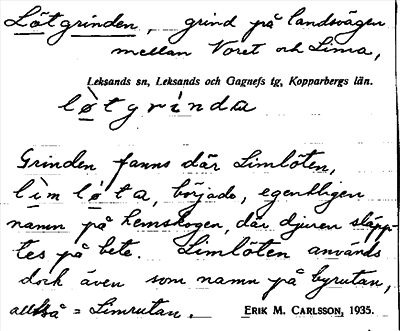 Lötgrinden, grind på landsvägen
mellan Noret och Lima,
Leksands sn, Leksands och Gagnefs tg, Kopparbergs län.
lø̀tgrìnda
Grinden fanns där Limlöten,
lìmlø̀ta, började, egentligen
namn på hemskogen, där djuren släpp-
tes på bete. Limlöten används
dock även som namn på byrutan,
alltså = Limrutan. ERIK M. CARLSSON, 1935.